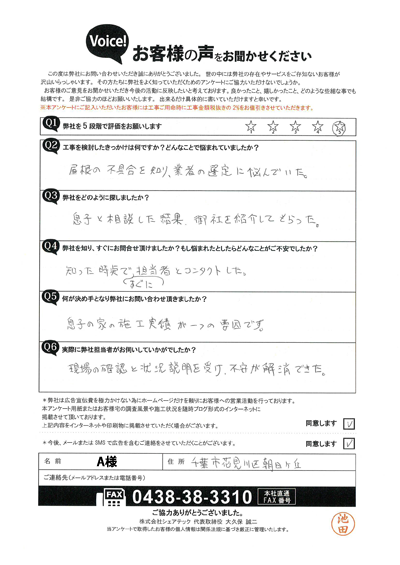 Voice! お客様の声をお聞かせください
この度は弊社にお問い合わせいただき誠にありがとうございました。世の中には弊社の存在やサービスをご存知ないお客様が
沢山いらっしゃいます。その方たちに弊社をよく知っていただくためのアンケートにご協力いただけないでしょうか。
お客様のご意見をお聞かせいただき今後の活動に反映したいと考えております。良かったこと、嬉しかったこと、どのような些細な事でも
結構です。是非ご協力のほどお願いいたします。出来るだけ具体的に書いていただけますと幸いです。
※本アンケートにご記入いただいたお客様には工事ご用命時に工事金額税抜きの2%をお値引きさせていただきます。
Q1 弊社を5段階で評価をお願いします
1 2 3 4 5
Q2 工事を検討したきっかけは何ですか?どんなことで悩まれていましたか?
屋根の不具合を知り、業者の選定に悩んでいた。
Q3 弊社をどのように探しましたか?
息子と相談した結果、御社を紹介してもらった。
Q4 弊社を知り、すぐにお問合せ頂けましたか?もし悩まれたとしたらどんなことがご不安でしたか?
知った時点で、担当者とコンタクトした。
(すぐに)
Q5 何が決め手となり弊社にお問い合わせ頂きましたか?
息子の家の施工実績が一つの要因です。
Q6 実際に弊社担当者がお伺いしていかがでしたか?
現場の確認と状況説明を受け、不安が解消できた。
*弊社は広告宣伝費を極力かけない為にホームページだけを頼りにお客様への営業活動を行っております。
本アンケート用紙またはお客様宅の調査風景や施工状況を随時ブログ形式のインターネットに
掲載させて頂いております。
上記内容をインターネットや印刷物に掲載させていただく場合がございます。 同意します ✓
*今後、メールまたはSMSで広告を含むご連絡をさせていただくことがございます。 同意します ✓
名前 A様 住所 千葉市花見川区朝日ヶ丘
ご連絡先(メールアドレスまたは電話番号)
FAX 0438-38-3310 本社直通 FAX番号
ご協力ありがとうございました。
株式会社シェアテック 代表取締役 大久保 誠二
当アンケートで取得したお客様の個人情報は関係法規に基づき厳正に管理いたします。
池田